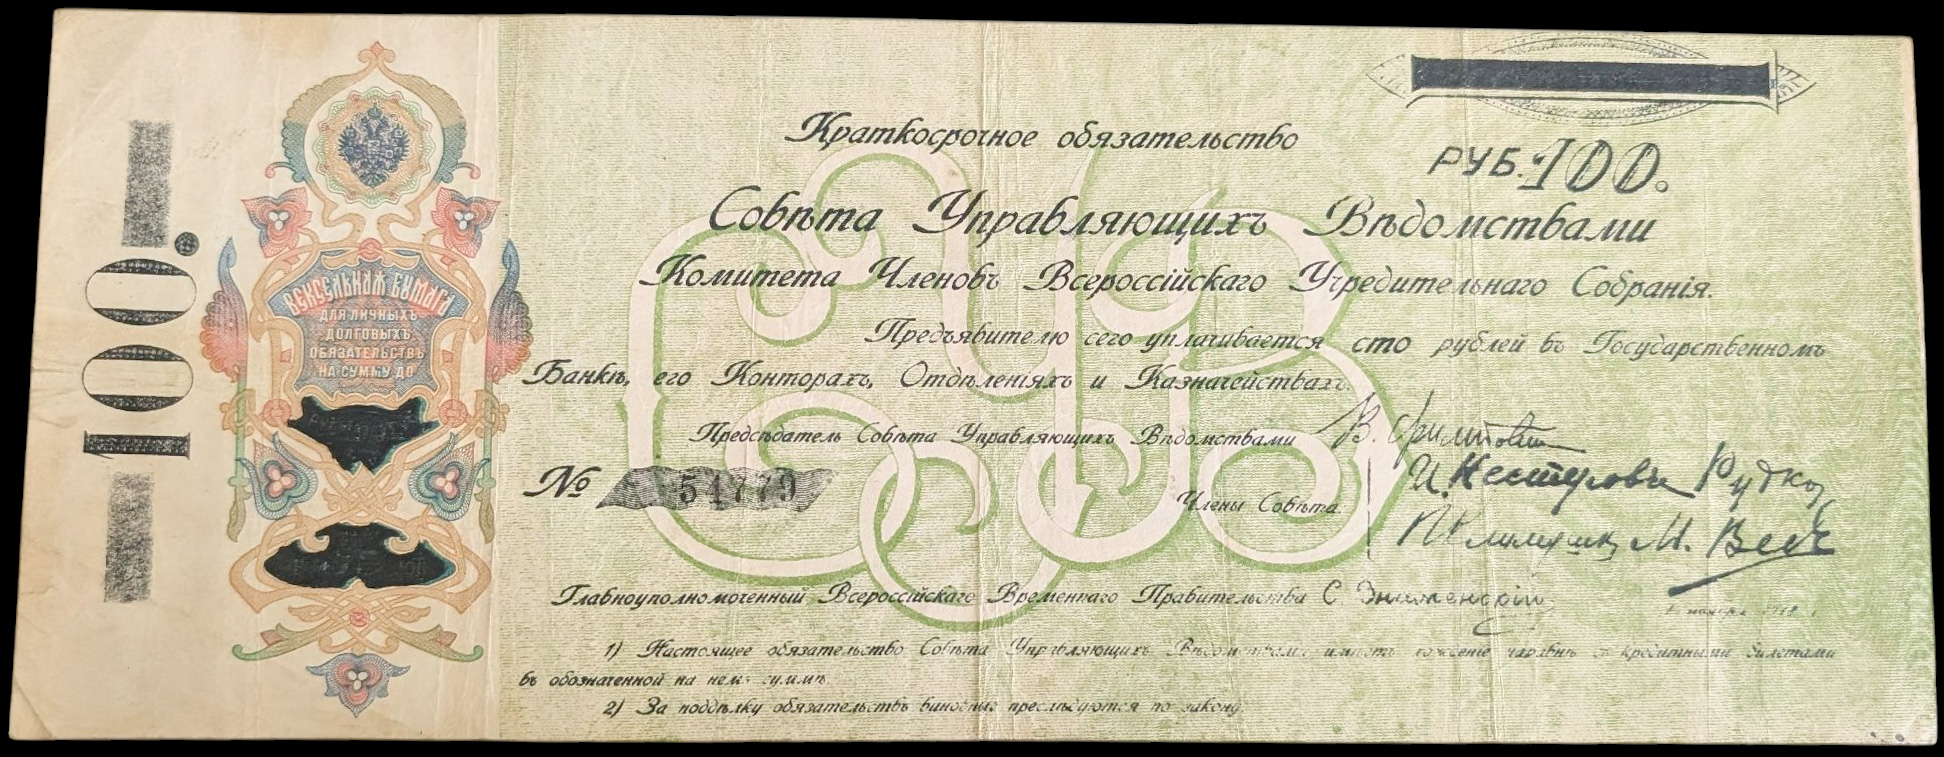 100.
ВЕКСЕЛЬНАЯ БУМАГА
ДЛЯ ЛИЧНЫХЪ
ДОЛГОВЫХЪ
ОБЯЗАТЕЛЬСТВЪ
НА СУММУ ДО
РУБ. 100.
Краткосрочное обязательство
Совѣта Управляющихъ Вѣдомствами
Комитета Членовъ Всероссійскаго Учредительнаго Собранія.
Предъявителю сего уплачивается сто рублей въ Государственномъ
Банкѣ, его Конторахъ, Отдѣленіяхъ и Казначействахъ.
Предсѣдатель Совѣта Управляющихъ Вѣдомствами В. Филиповскій
№ 54779
Члены Совѣта. И. Нестеровъ Рудко
П. Климушк М. Вед
Главноуполномоченный Всероссійскаго Временнаго Правительства С Знаменскій
1) Настоящее обязательство Совѣта Управляющихъ Вѣдомствами имѣетъ хожденіе наравнѣ съ кредитными билетами
въ обозначенной на немъ суммѣ.
2) За поддѣлку обязательствъ виновные преслѣдуются по закону.